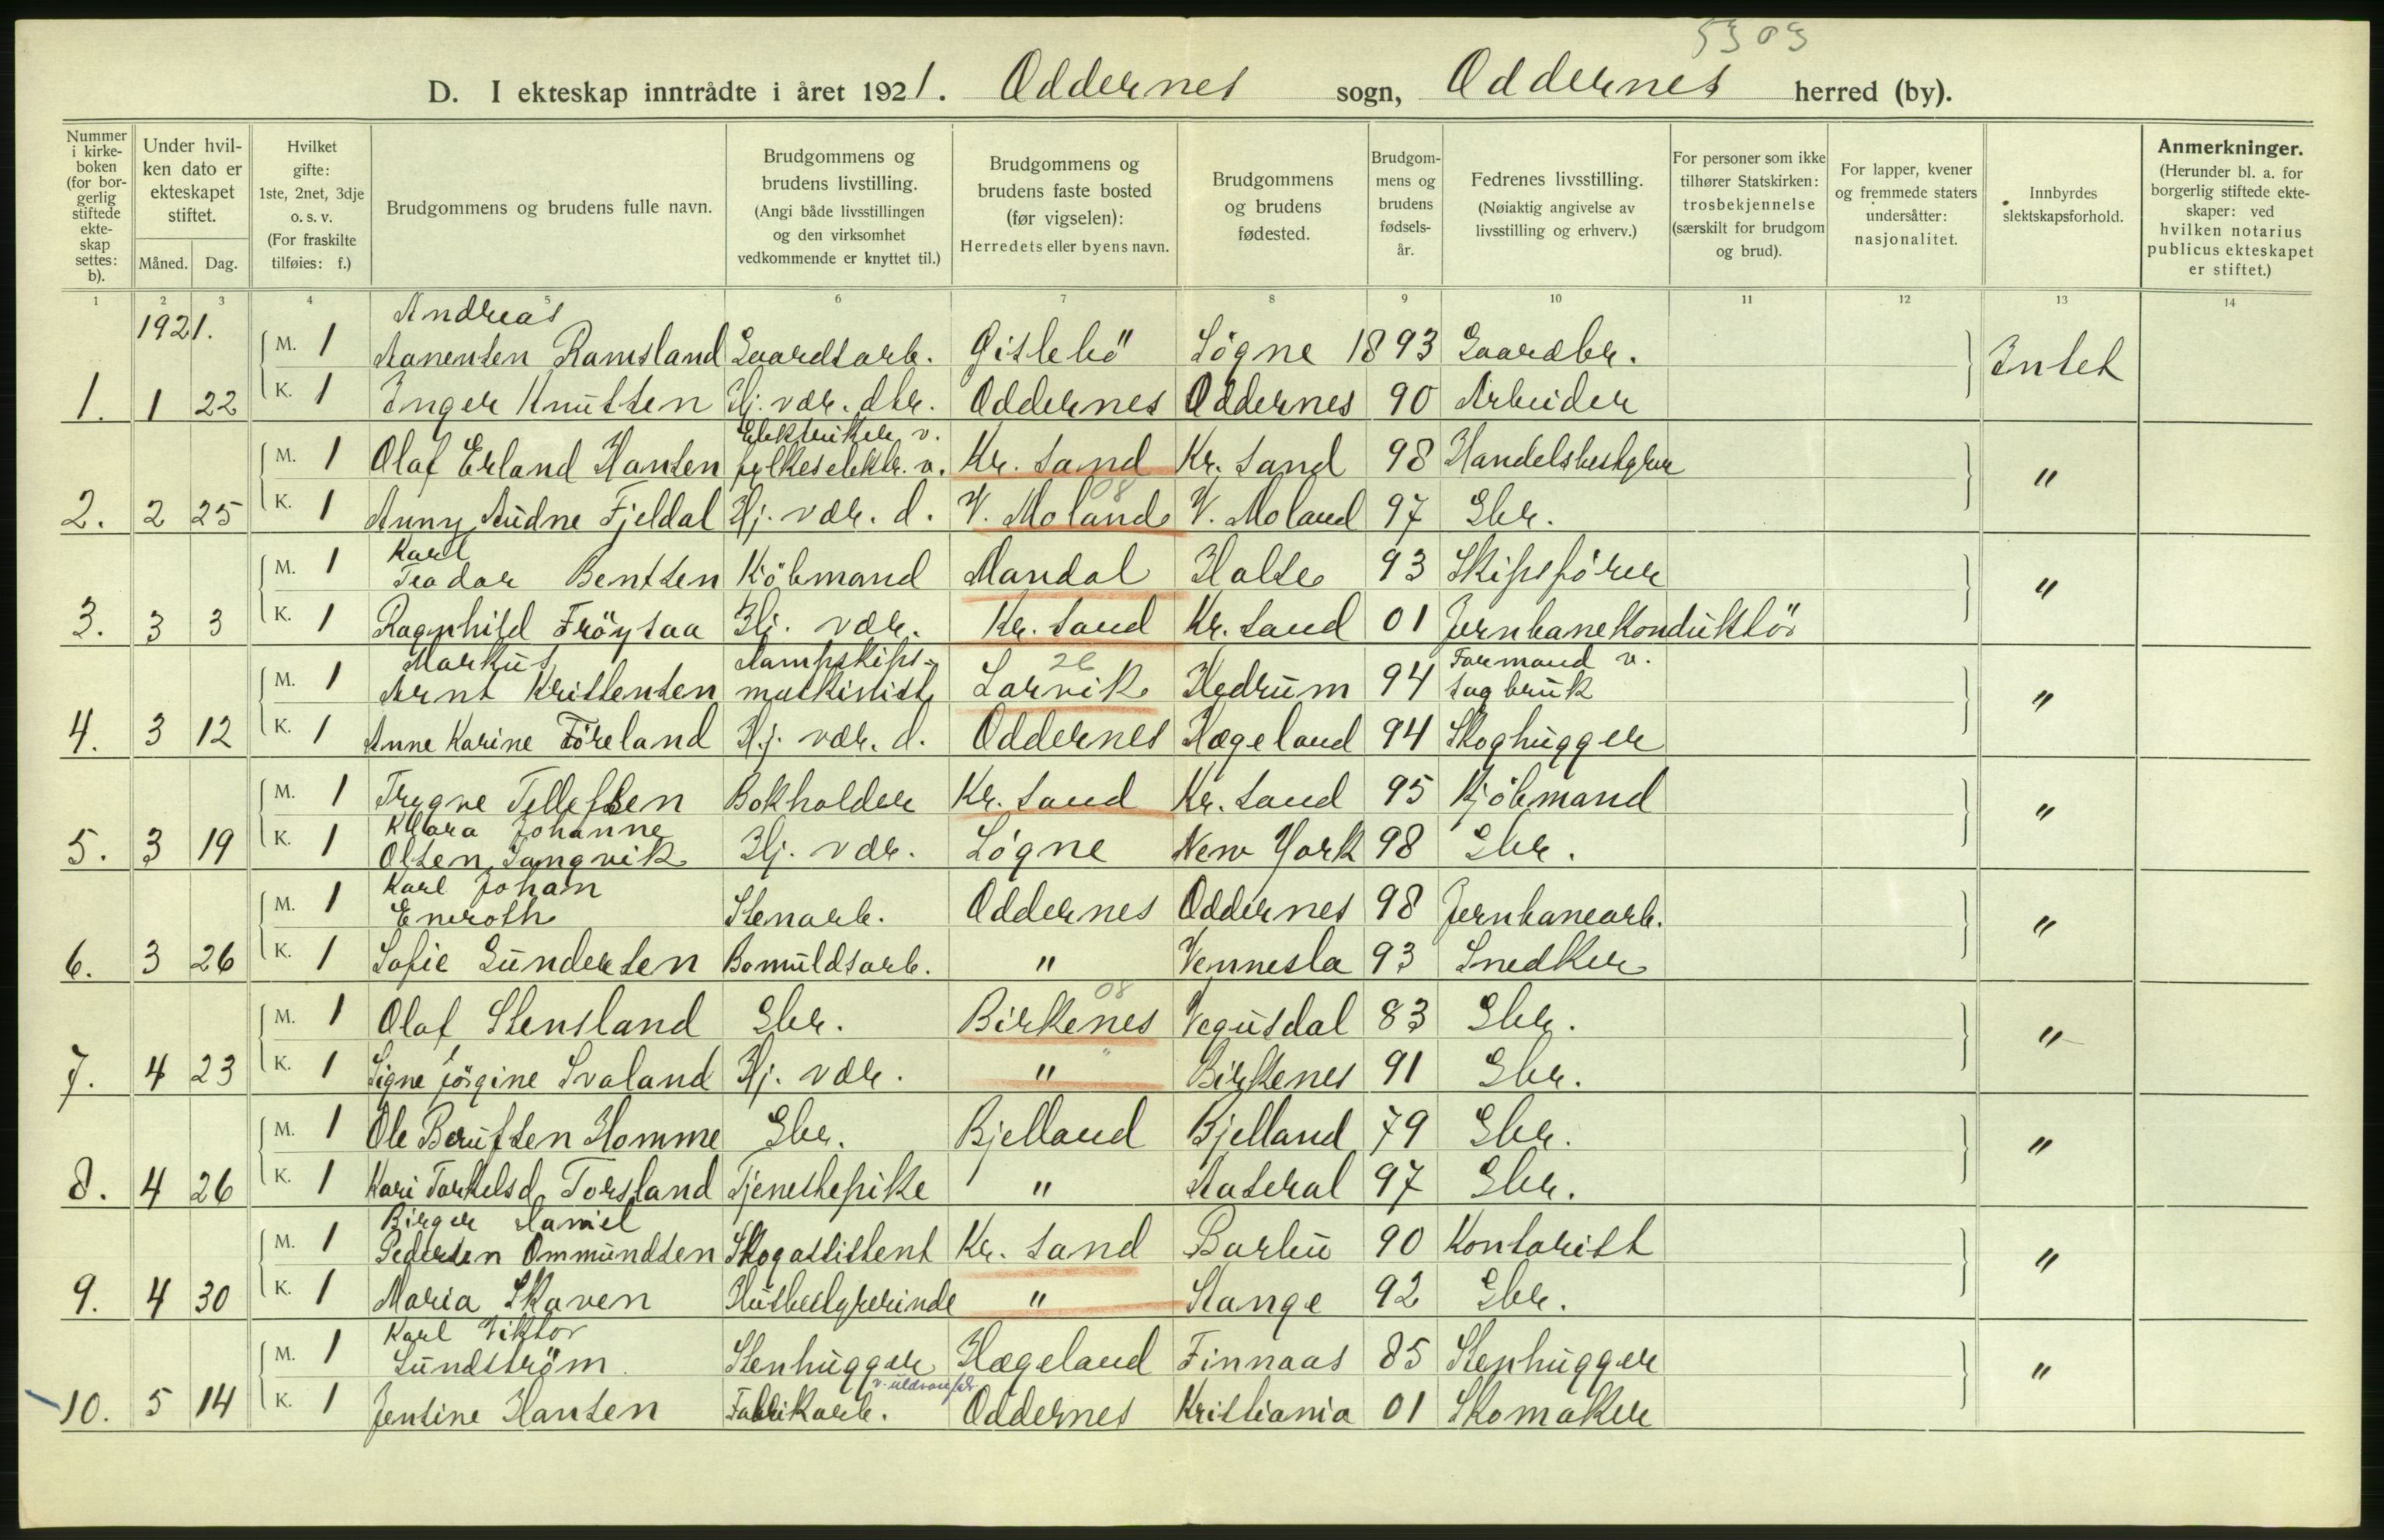 5303
D. I ekteskap inntrådte i året 1921. Oddernes sogn, Oddernes herred (by).
Nummer i kirke-boken (for bor-gerlig stiftede ekte-skap settes: b).
Under hvil-ken dato er ekteskapet stiftet.
Måned. Dag.
Hvilket gifte: 1ste, 2net, 3dje o. s. v. (For fraskilte tilføies: f.)
Brudgommens og brudens fulle navn.
Brudgommens og brudens livstilling. (Angi både livsstillingen og den virksomhet vedkommende er knyttet til.)
Brudgommens og brudens faste bosted (før vigselen): Herredets eller byens navn.
Brudgommens og brudens fødested.
Brudgom-mens og brudens fødsels-år.
Fedrenes livsstilling. (Nøiaktig angivelse av livsstilling og erhverv.)
For personer som ikke tilhører Statskirken: trosbekjennelse (særskilt for brudgom og brud).
For lapper, kvener og fremmede staters undersåtter: nasjonalitet.
Innbyrdes slektskapsforhold.
Anmerkninger. (Herunder bl. a. for borgerlig stiftede ekte-skaper: ved hvilken notarius publicus ekteskapet er stiftet.)
1 2 3 4 5 6 7 8 9 10 11 12 13 14
1921.
Andreas
M. 1 Aanensen Ramsland Gaardsarb. Gislebö Søgne 1893 Gaardbr. Intet
1. 1 22 K. 1 Inger Knutsen Hj. vær. dtr. Oddernes Oddernes 90 Arbeider
Elektriker v.
M. 1 Olaf Erland Hansen fylkeselektr. v. Kr. sand Kr. sand 98 Handelsbestyrer "
08
2. 2 25 K. 1 Anny Audne Fjeldal Hj. vær. d. V. Moland V. Moland 97 Gbr.
Karl
M. 1 Teodor Bentsen Kjöbmand Mandal Halse 93 Skipsförer "
3. 3 3 K. 1 Ragnhild Fröysaa Hj. vær. Kr. sand Kr. sand 01 Jernbanekonduktör
Markus Dampskips- 26 Formand v.
M. 1 Arnt Kristensen maskinist Larvik Hedrum 94 sagbruk "
4. 3 12 K. 1 Anne Karine Föreland Hj. vær. d. Oddernes Hægeland 94 Skoghugger
M. 1 Trygve Tellefsen Bokholder Kr. sand Kr. sand 95 Kjöbmand "
Klara Johanne
5. 3 19 K. 1 Olsen Tangvik Hj. vær. Søgne New York 98 Gbr.
Karl Johan
M. 1 Eneroth Stenarb. Oddernes Oddernes 98 Jernbanearb. "
6. 3 26 K. 1 Sofie Gundersen Bomuldsarb. " Vennesla 93 Snedker
08
M. 1 Olaf Stensland Gbr. Birkenes Vegusdal 83 Gbr. "
7. 4 23 K. 1 Signe Jörgine Svaland Hj. vær. " Birkenes 91 Gbr.
M. 1 Ole Berufsen Homme Gbr. Bjelland Bjelland 79 Gbr. "
8. 4 26 K. 1 Kari Torkelsd. Torsland Tjenestepike " Aaseral 97 Gbr.
Birger Daniel
M. 1 Pedersen Ommundsen Skogassistent Kr. sand Barbu 90 Kontorist "
9. 4 30 K. 1 Maria Skaven Husbestyrerinde " Stange 92 Gbr.
Karl Viktor
M. 1 Lundström Stenhugger Hægeland Finnaas 85 Stenhugger "
10. 5 14 K. 1 Jensine Hansen Fabrikarb. Oddernes Kristiania 01 Skomaker